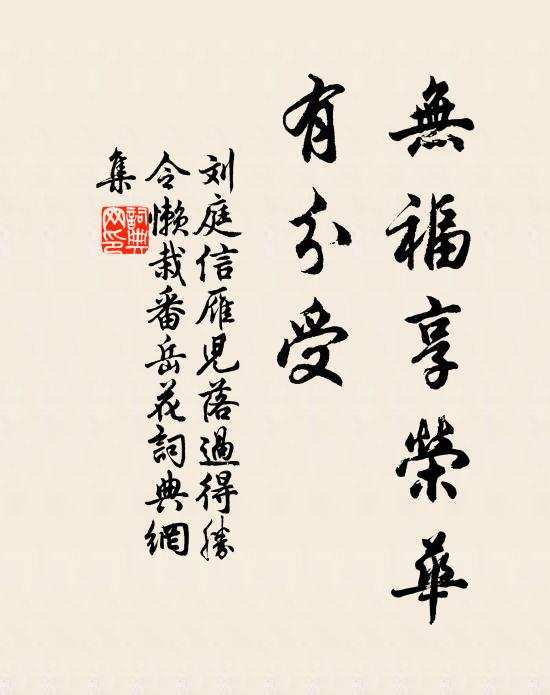 無福享榮華
有分受
刘庭信雁児落過得勝
令懒栽番岳花詞典網
集
詞典
网印